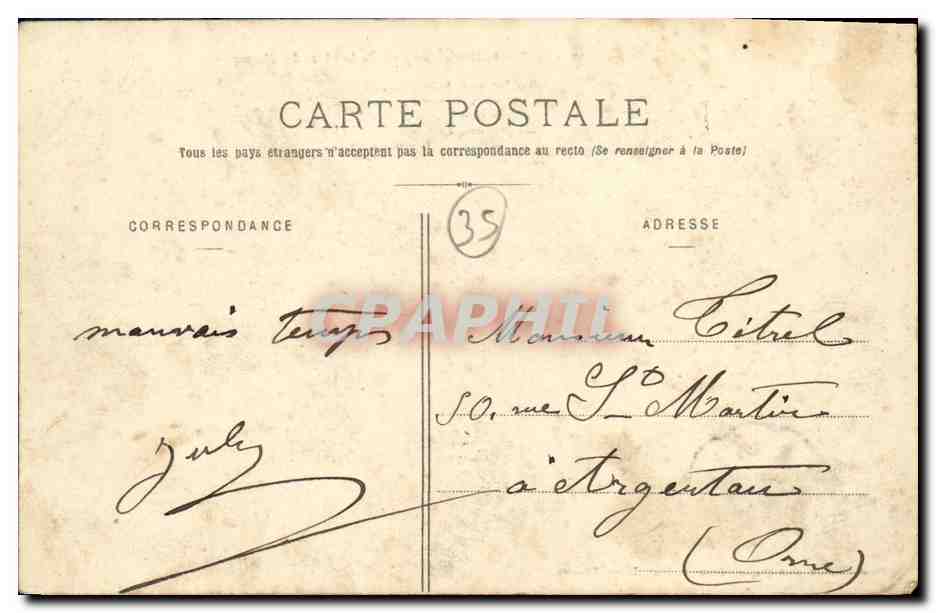 CARTE POSTALE
Tous les pays étrangers n'acceptent pas la correspondance au recto (Se renseigner à la Poste)
35
CORRESPONDANCE
mauvais temps
ADRESSE
CPAPHIL
Monsieur Titrel
50, rue St Martin
à Argentan
(Orne)